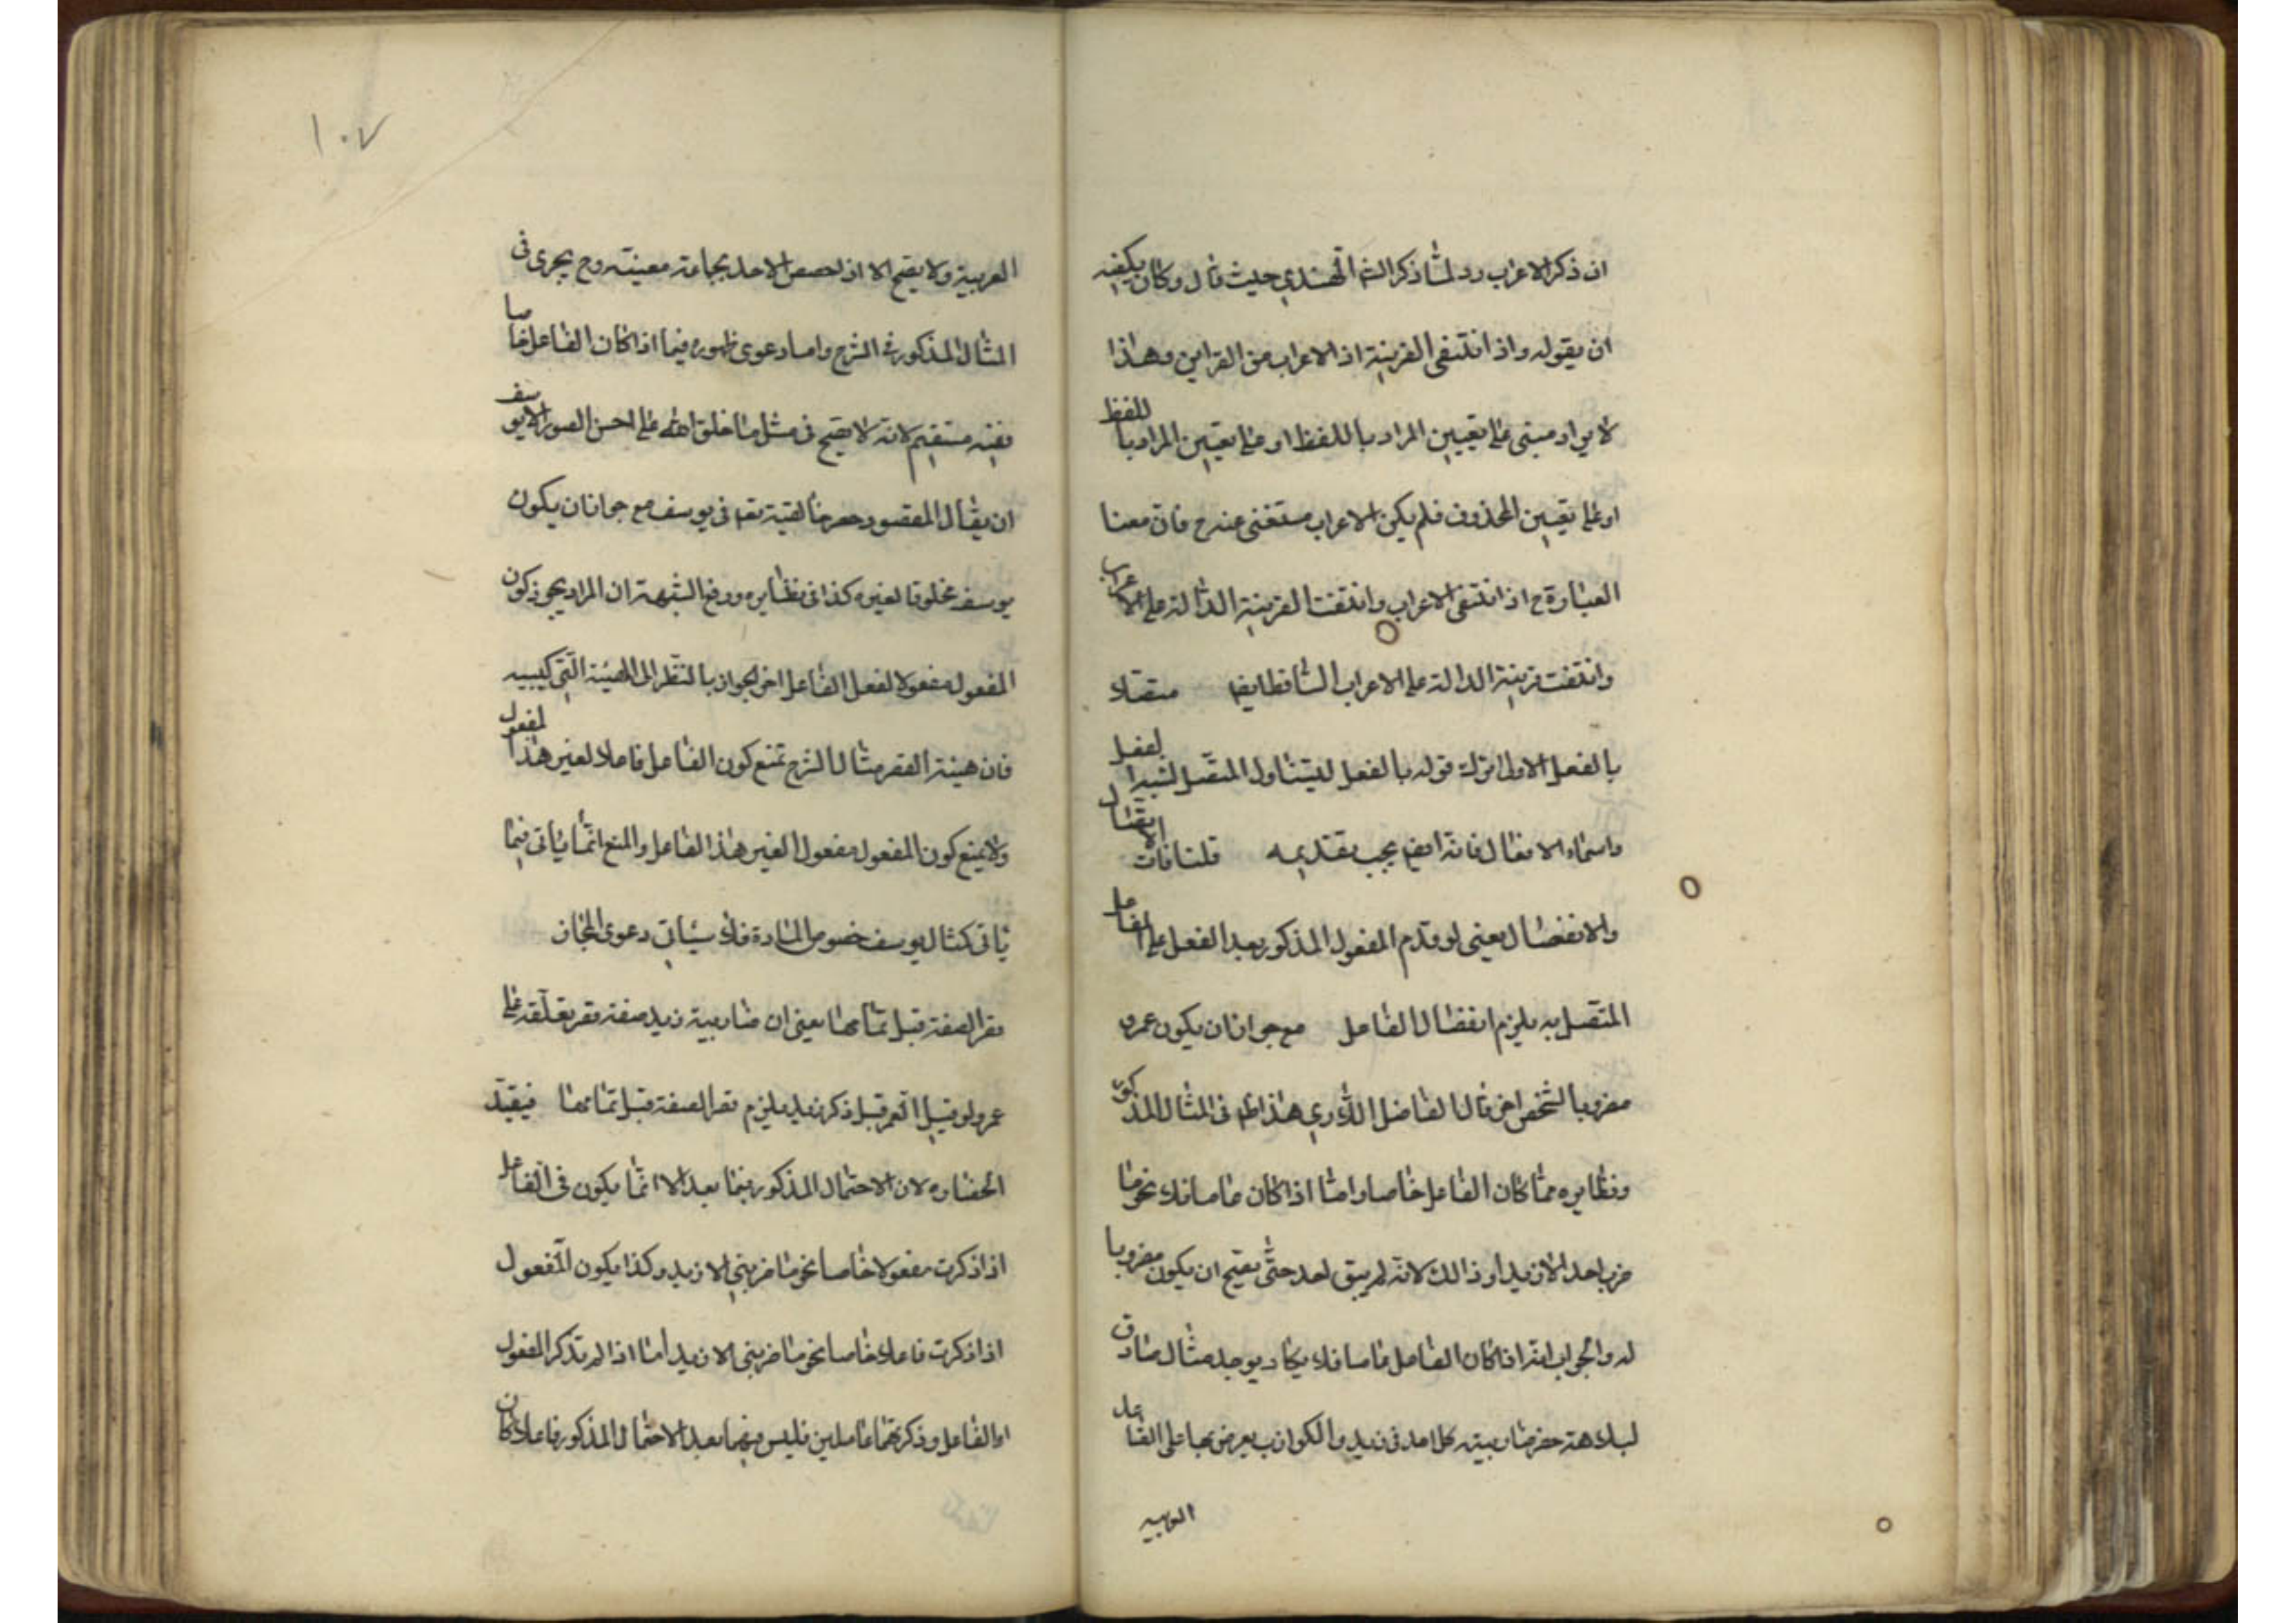 ان ذكر الاعراب رد لما ذكر الشه الهندي حيث قال وكان يكفيه
ان يقوله واذا انتفى القرينة اذ الاعراب من القراين وهذا
لا يراد مبنى على تعيين المراد باللفظ او على تعيين المراد باللفظ
او على تعيين المحذوف فلم يكن الاعراب مستغنى عنه ح فان معنا
العبارة ح اذا انتفى الاعراب وانتفت القرينة الدالة على الاعراب
وانتفت قرينة الدالة على الاعراب الساقط ايضا
بالفعل الاولى ترك قوله بالفعل ليتناول المتصل لشبه الفعل
واسماء الافعال فانه ايضا يجب تقديمه قلنا فات الاتصال
والانفصال يعنى لو قدم المفعول المذكور بعد الفعل على الفاعل
المتصل به يلزم انفصال الفاعل مع جواز ان يكون عمرو
مضروبا لشخص اخر قال الفاضل اللاري هذا ظ فى المثال المذكور
ونظايره مما كان الفاعل خاصا واما اذا كان عاما فلا نحو ما
ضرب احد الا زيدا وذالك لانه لم يبق احد حتى يصح ان يكون مضروبا
له والجواب انه اذا كان الفاعل عاما فلا يكاد يوجد مثال صادق
لبداهة حصر ضاربية كل احد فى زيد والكواذب يعرض بها على القاعد
العربيه
١٠٧
العربية ولا يصح الا اذ لخصص الاحد بجماعة معينة وح يجرى فى
المثال المذكور فى الشرح واما دعوى ظهوره فيما اذا كان الفاعل خاصا
فغيه مستقيم لانه لا يصح فى مثل ما خلق الله على احسن الصور الا يوسف
ان يقال المقصود حصر خالقية تعه فى يوسف مع جواز ان يكون
يوسف مخلوقا لغيره كذا فى نظايره ودفع الشبهة ان المراد بجواز كون
المفعول مفعولا لفعل الفاعل اخر الجواز بالنظر الى الهيئة التركيبيه
فان هيئة القصر مثال الشرح تمنع كون الفاعل فاعلا لغير هذا المفعول
ولا يمنع كون المفعول مفعولا لغير هذا الفاعل والمنع انما ياتى فيما
ياتى كمثال يوسف خصوص المادة فلا سيات دعوى المجاز
قصر الصفة قبل تمامها يعنى ان ضاربية زيد صفة قصر تعلقه على
عمرو لو قيل العمر قبل ذكر زيد يلزم قصر الصفة قبل تمامها فيفيد
انحصاره لان الاحتمال المذكور فيما بعد الا انما يكون فى الفاعل
اذا ذكرت مفعولا خاصا نحو ما ضربنى الا زيد وكذا يكون المفعول
اذا ذكرت فاعلا خاصا نحو ما ضربنى الا زيد اما اذا لم تذكر المفعول
او الفاعل وذكرتهما عاملين فليس فيما بعد الاحتمال المذكور فاعلا كان